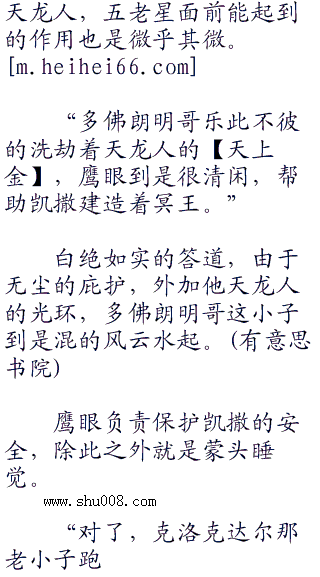 天龙人，五老星面前能起到
的作用也是微乎其微。
[m.heihei66.com]
“多佛朗明哥乐此不彼
的洗劫着天龙人的【天上
金】，鹰眼到是很清闲，帮
助凯撒建造着冥王。”
白绝如实的答道，由于
无尘的庇护，外加他天龙人
的光环，多佛朗明哥这小子
到是混的风云水起。(有意思
书院)
鹰眼负责保护凯撒的安
全，除此之外就是蒙头睡
觉。
www.shu008.com
“对了，克洛克达尔那
老小子跑